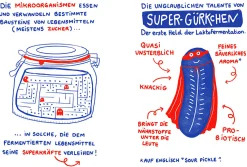 DIE MIKROORGANISMEN ESSEN
UND VERWANDELN BESTIMMTE
BAUSTEINE VON LEBENSMITTELN
(MEISTENS ZUCKER)...
... IN SOLCHE, DIE DEM
FERMENTIERTEN LEBENSMITTEL
SEINE SUPERKRÄFTE VERLEIHEN!
DIE UNGLAUBLICHEN TALENTE VON
SUPER-GÜRKCHEN
Der erste Held der Laktofermentation.
QUASI
UNSTERBLICH
FEINES
SÄUERLICHES
AROMA*
KNACKIG
BRINGT DIE
NÄHRSTOFFE
UNTER
DIE LEUTE
PRO-
BIOTISCH
*AUF ENGLISCH "SOUR PICKLE"